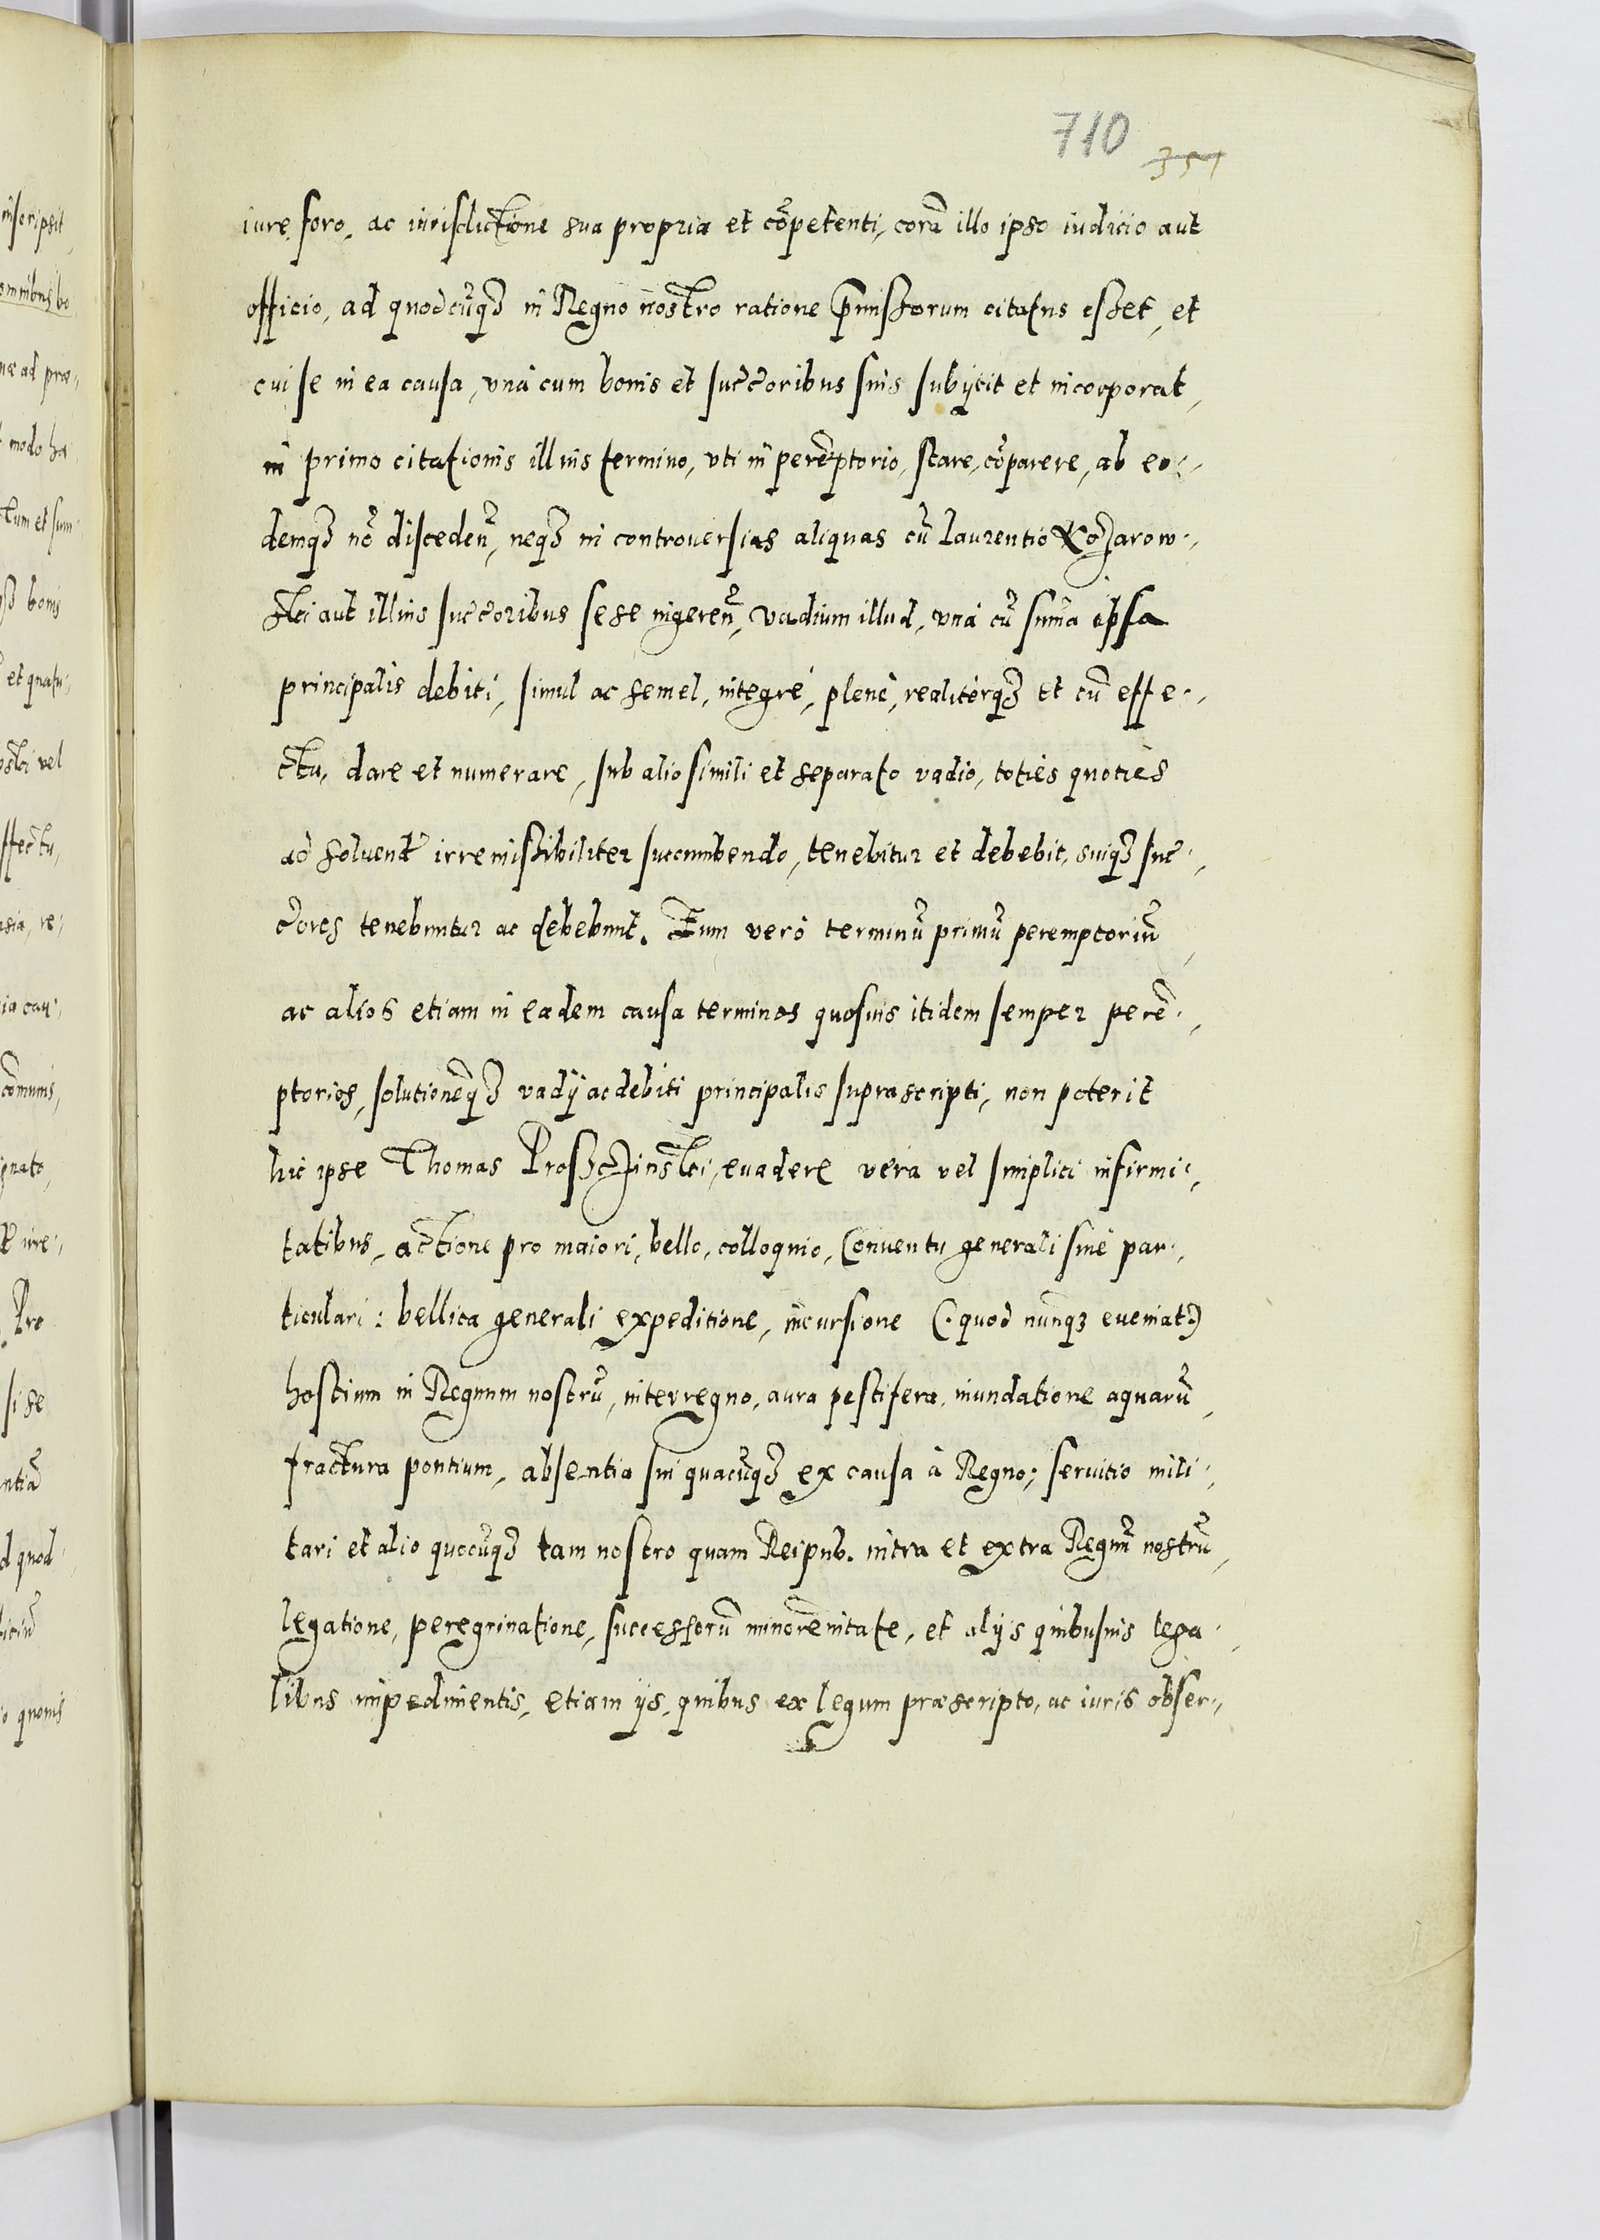 710
351
iure, foro, ac iurisdictione sua propria et cõpetenti, corã illo ipso iudicio aut
officio, ad quodcũqꝫ in Regno nostro ratione p̃missorum citatus esset, et
cui se in ea causa, vnà cum bonis et succ̃oribus suis subijcit et incorporat,
in primo citationis illius termino, vti in perẽptorio, stare, cõparere, ab eo-
demqꝫ nõ disceden̄, neqꝫ in controuersias aliquas cũ Laurentio Kozarow-
ski aut illius succ̃oribus sese ingeren̄, vadium illud, vnà cũ sum̃a ipsa
principalis debiti, simul ac semel, integrè, plenè, realiterqꝫ et cũ effe-
ctu, dare et numerare, sub alio simili et separato vadio, toties quoties
ad soluend̃ irremissibiliter succumbendo, tenebitur et debebit, suiqꝫ suc-
c̃ores tenebuntur ac debebunt. Eum verò terminũ primũ peremptoriũ
ac alios etiam in eadem causa terminos quosuis itidem semper perẽ-
ptorios, solutionẽqꝫ vadij ac debiti principalis suprascripti, non poterit
hic ipse Thomas Proszczinski, euadere vera vel simplici infirmi-
tatibus, actione pro maiori, bello, colloquio, Conuentu generali siuè par-
ticulari: bellica generali expeditione, incursione (quod nunqꝫ eueniat)
hostium in Regnum nostrũ, interregno, aura pestifera, inundatione aquarũ
fractura pontium, absentia sui quacũqꝫ ex causa à Regno; seruitio mili-
tari et alio quocũqꝫ tam nostro quam Reipub. intra et extra Regnũ nostrũ,
legatione, peregrinatione, successorũ minorẽnitate, et alijs quibusuis lega-
libus impedimentis, etiam ijs, quibus ex legum præscripto, ac iuris obser-